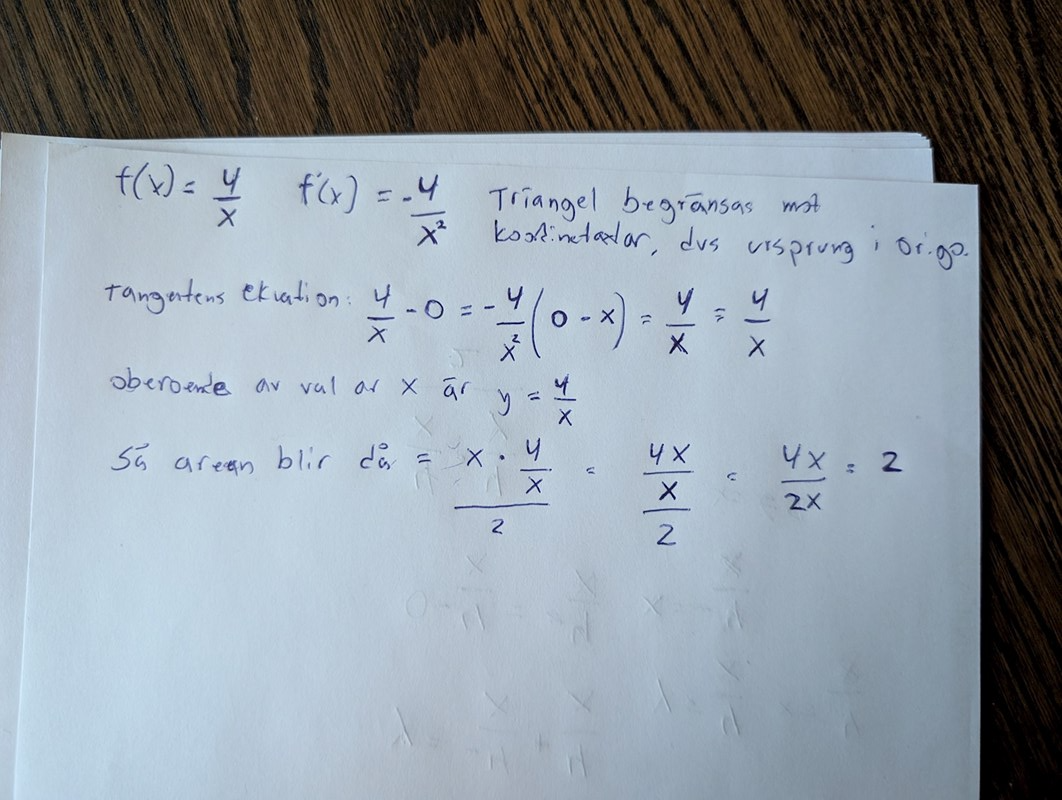 f(x) = 4/x f'(x) = -4/x² Triangel begränsas mot
koordinataxlar, dvs ursprung i origo.
Tangentens ekvation: 4/x - 0 = -4/x² (0 - x) = 4/x = 4/x
oberoende av val av x är y = 4/x
Så arean blir då = (x · 4/x)/2 = (4x/x)/2 = 4x/2x = 2